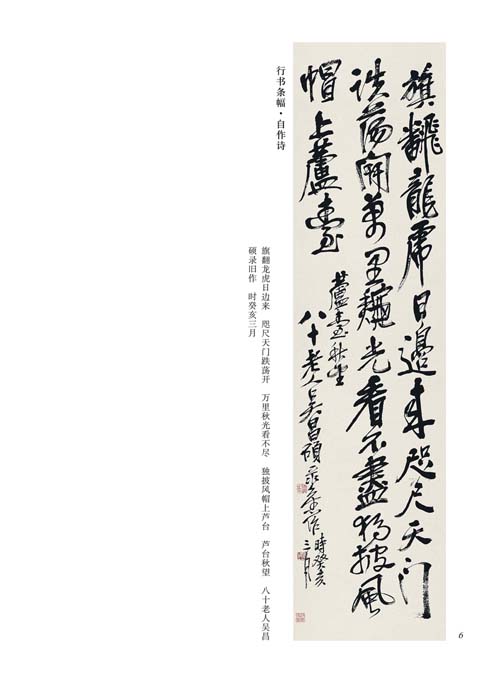 行书条幅·自作诗
旗翻龙虎日边来 咫尺天门跌荡开 万里秋光看不尽 独披风帽上芦台 芦台秋望 八十老人吴昌
硕录旧作 时癸亥三月
旗翻龍虎日邊来咫尺天门
詄蕩開萬里龝光看不盡獨披風
帽上蘆臺
蘆臺秋望
八十老人吴昌碩录舊作
時癸亥
三月
6